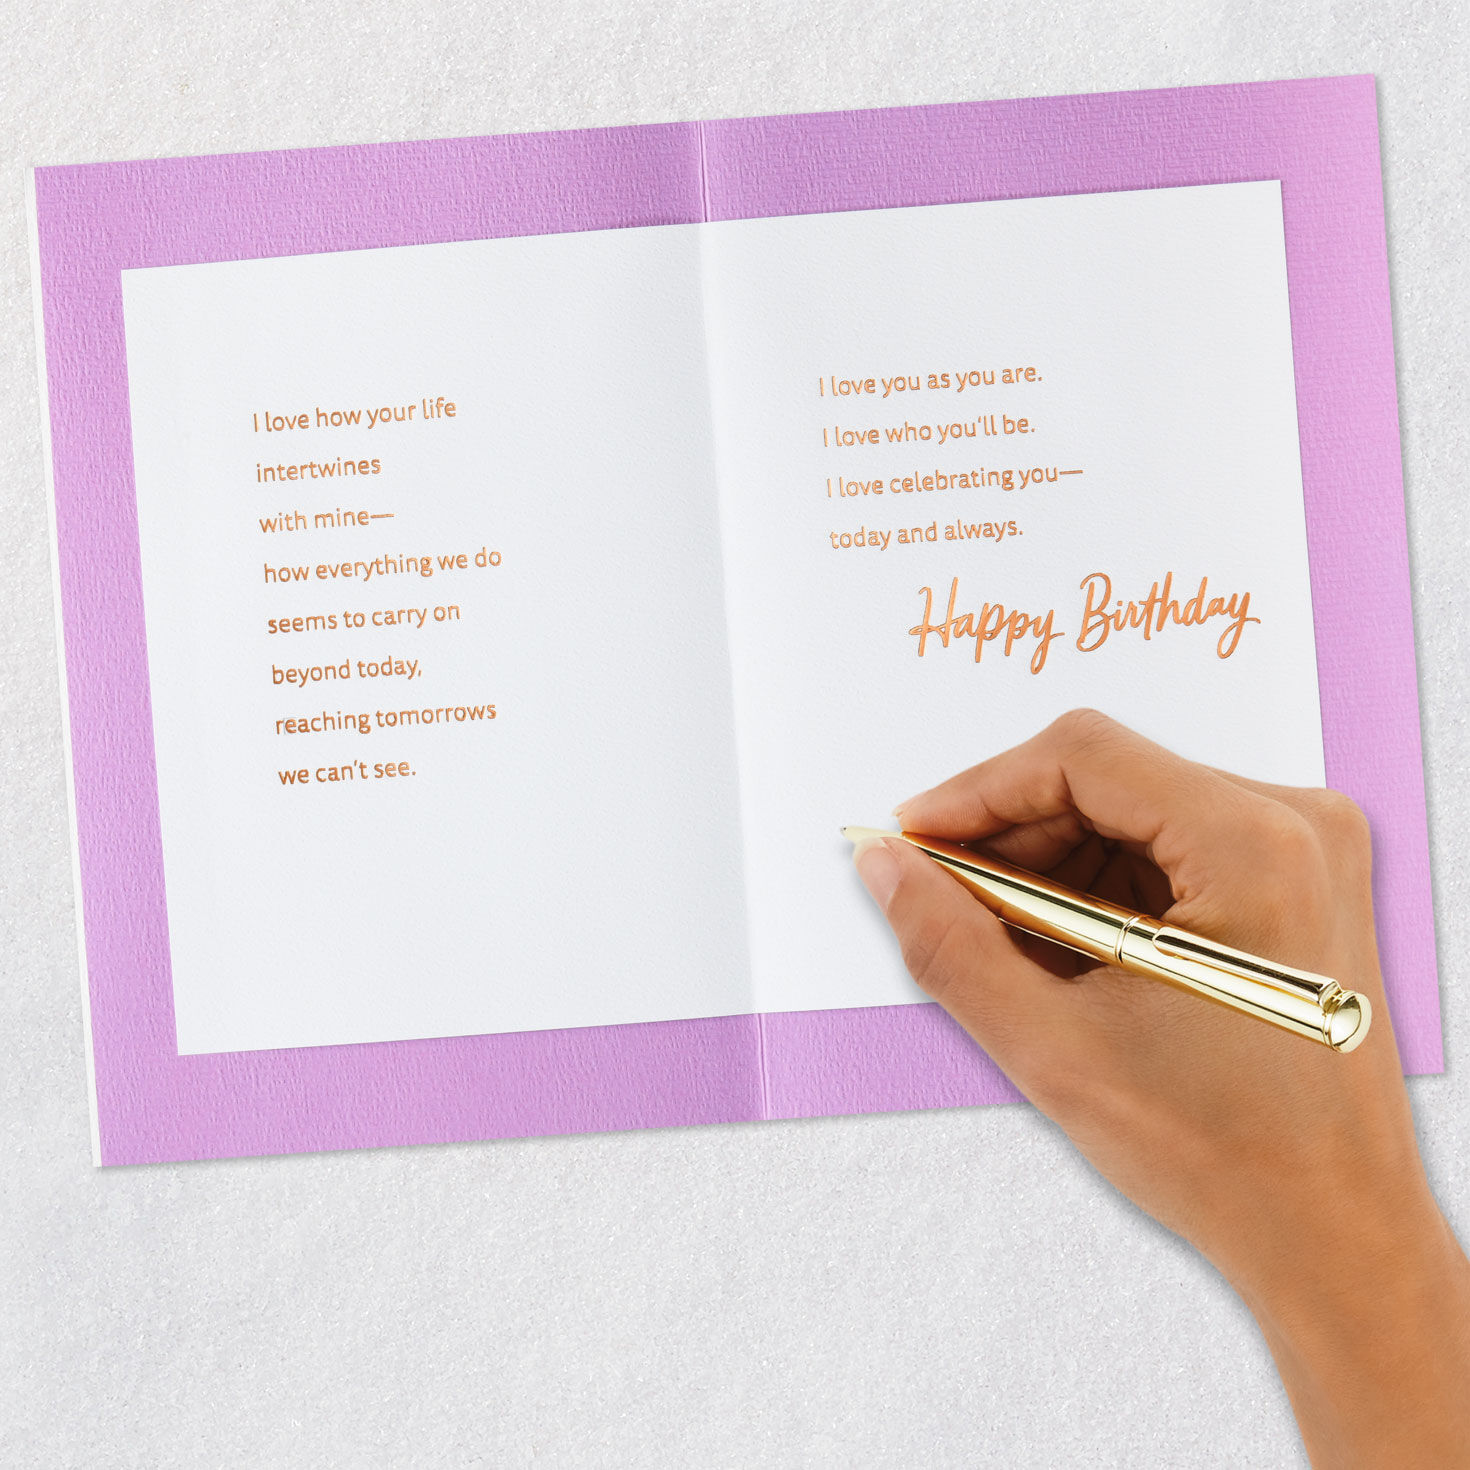 I love how your life
intertwines
with mine—
how everything we do
seems to carry on
beyond today,
reaching tomorrows
we can't see.
I love you as you are.
I love who you'll be.
I love celebrating you—
today and always.
Happy Birthday